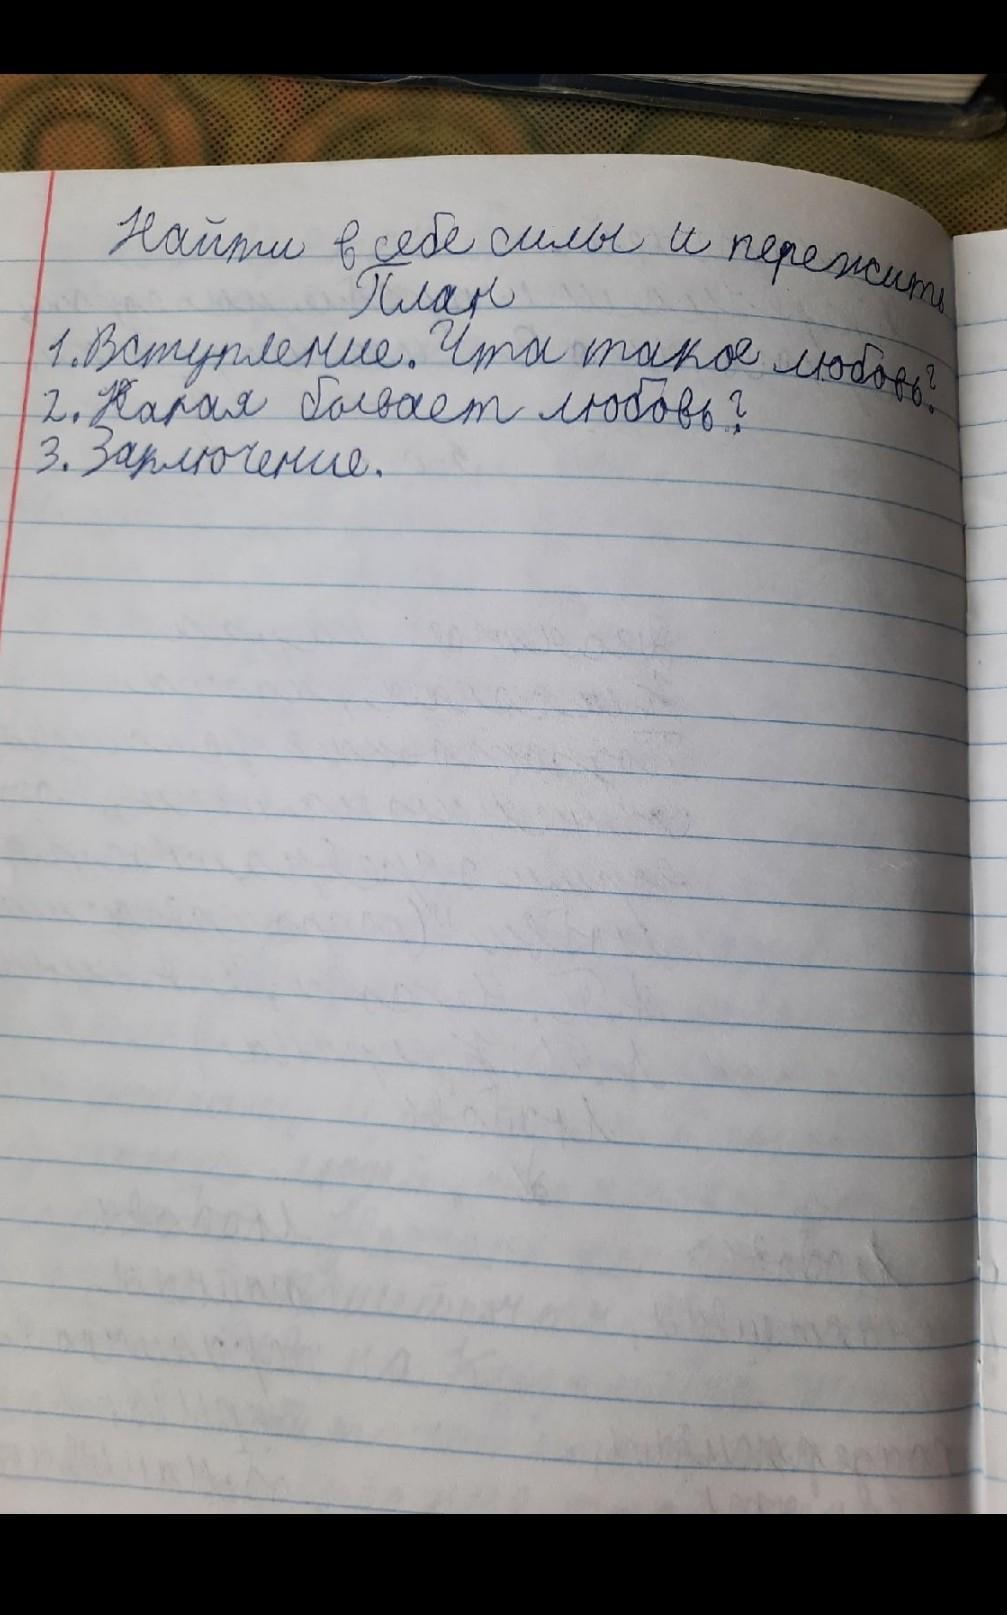 Найти в себе силы и пережить
План
1. Вступление. Что такое любовь?
2. Какая бывает любовь?
3. Заключение.